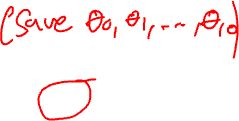 (Save θ₀, θ₁, ..., θ₁₀)